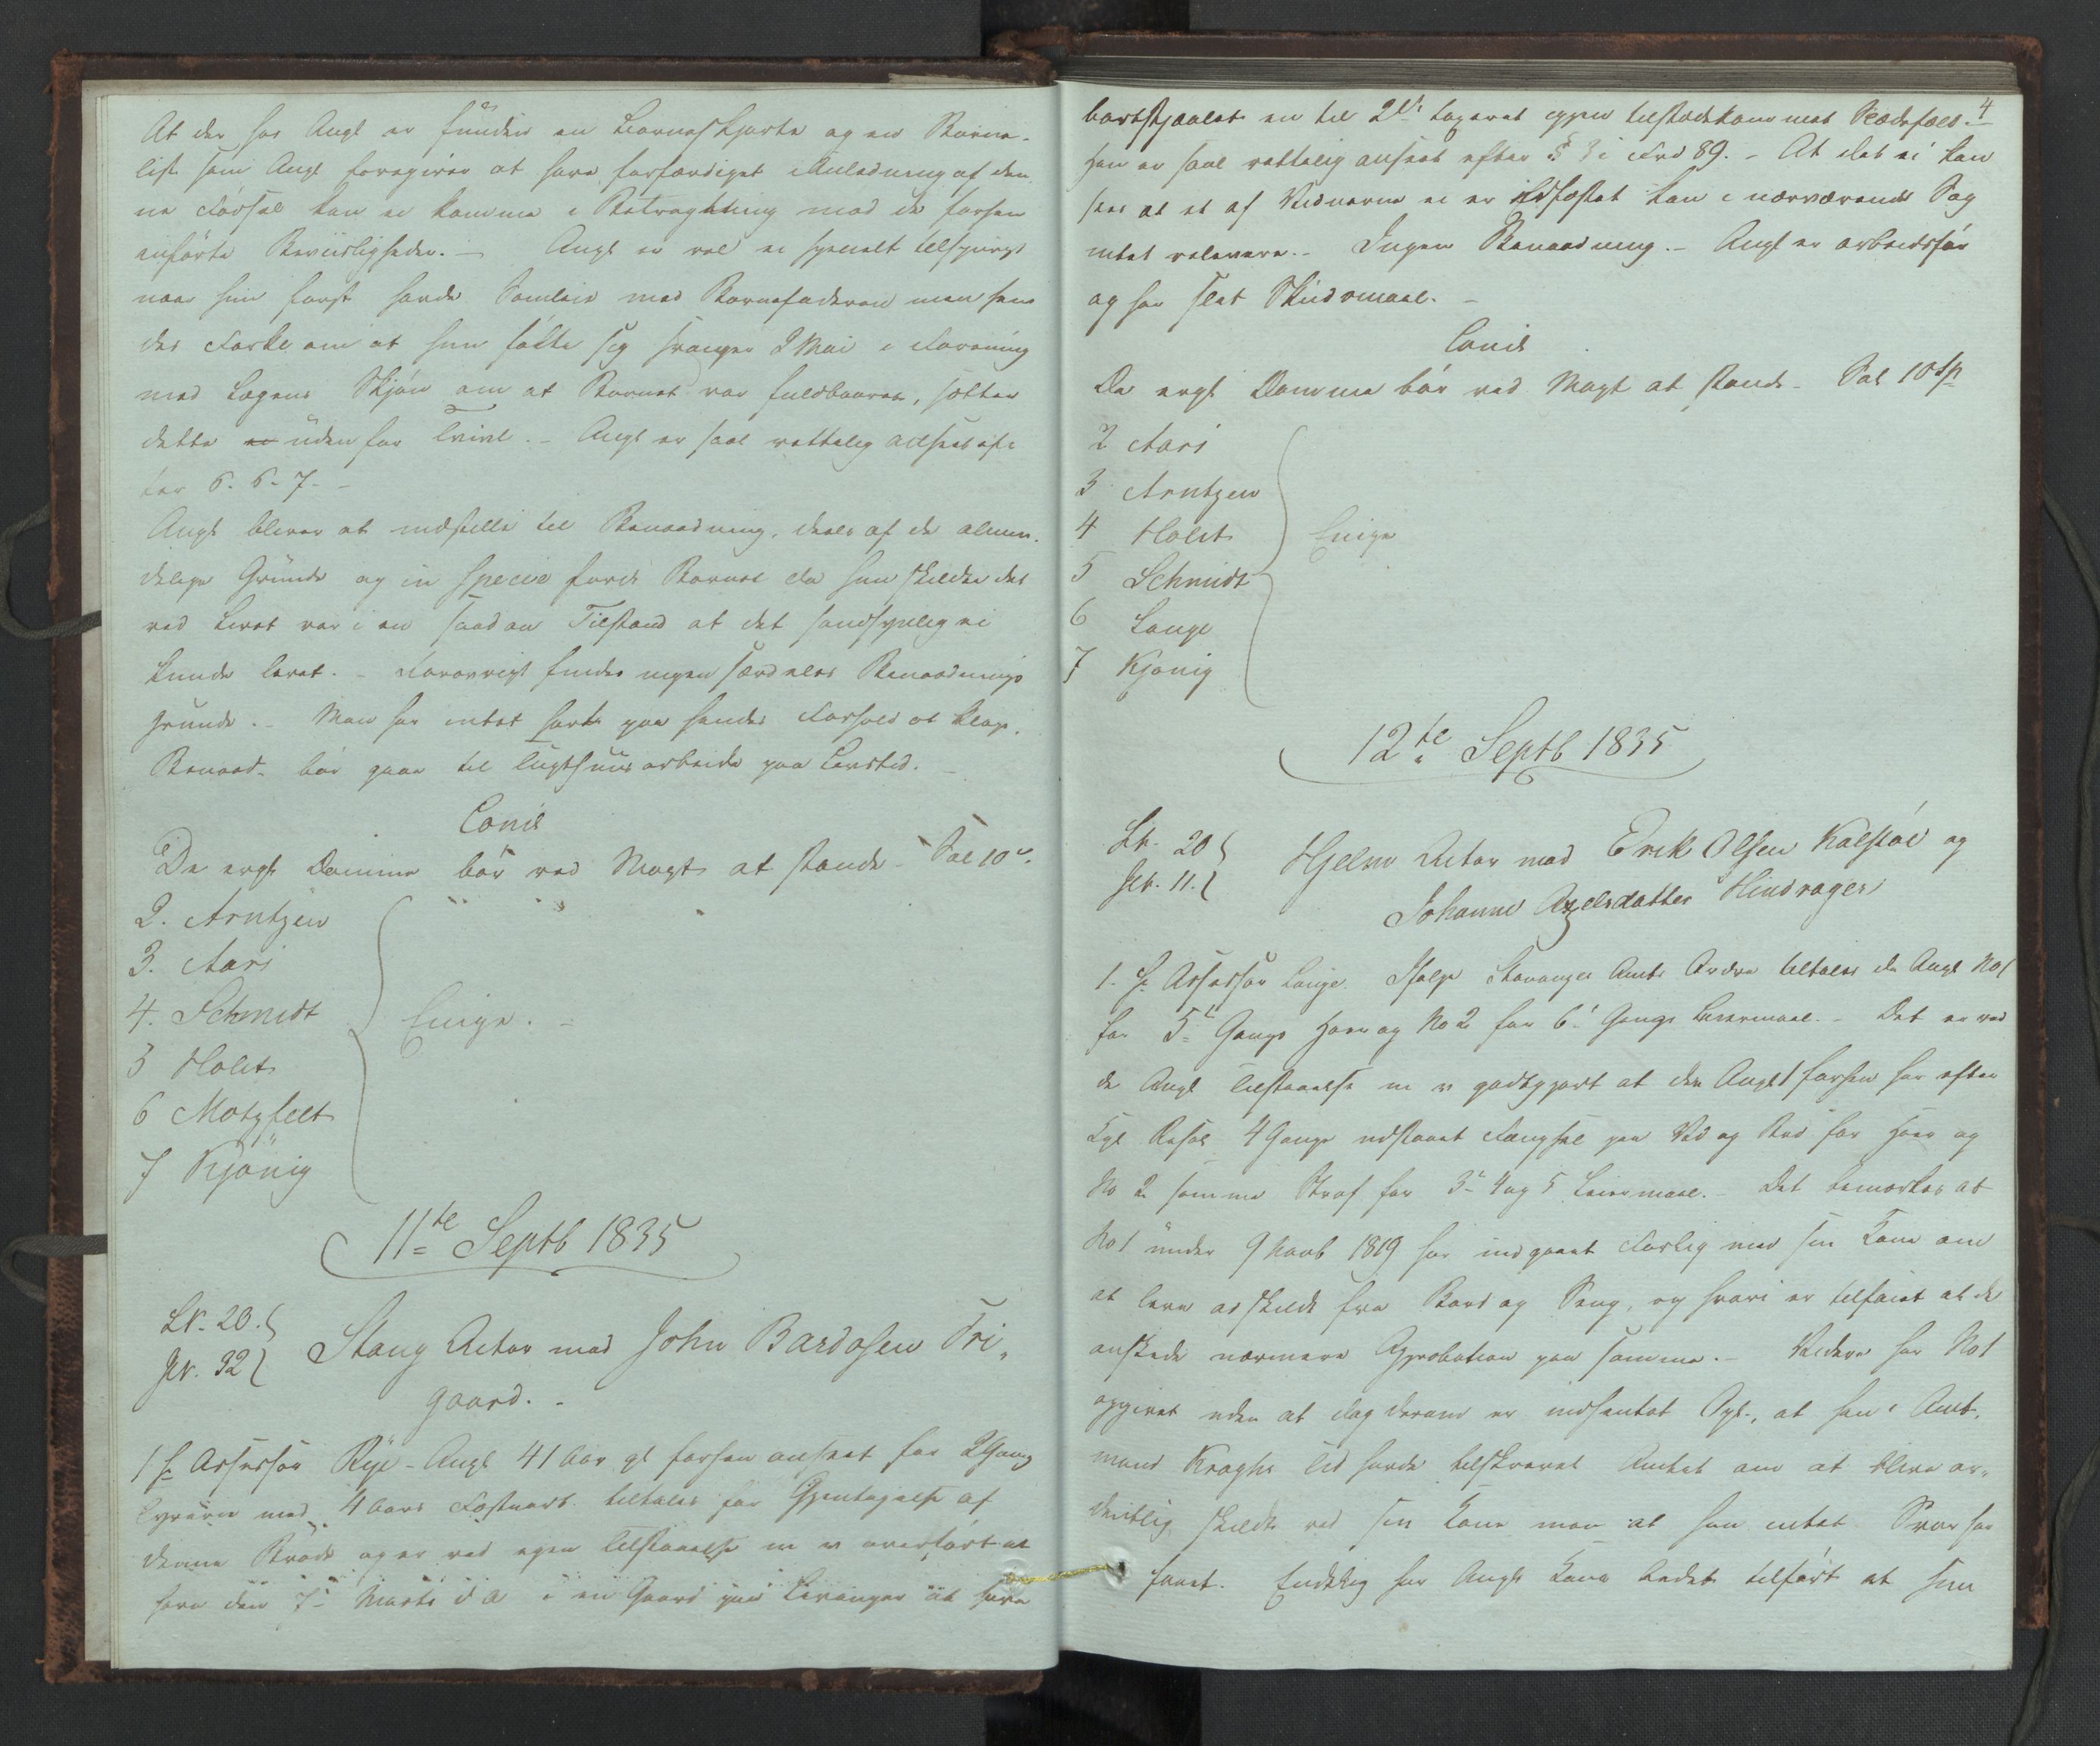 At der hos Angl er funden en Barneskjorte og en Barne-
list som Angl foregiver at have forfærdiget i Anledning af den
ne Fødsel kan ei komme i Betragtning mod de forhen
anførte Beviisligheder. – Angl er vel ei specielt tilspurgt
naar hun først havde Samleie med Barnefaderen men hen
des Forkl om at hun følte sig svanger 2 Mai i Forening
med Lægens Skjøn om at Barnet var fuldbaaren, sætter
dette uden for Tvivl. – Angl er saal rettelig anseet ef
ter 6. 6. 7. –
Angl bliver at indstille til Benaadning, deels af de almin
delige Grunde og in specie fordi Barnet da hun skildte det
ved Livet var i en saadan Tilstand at det sandsynlig ei
kunde levet. – Forøvrigt findes ingen særdeles Benaadnings
grunde. – Man har intet havt paa hendes Forhold at klage.
Benaad. bør gaae til Tugthuusarbeide paa Livstid. –
Concl
De ergl Domme bør ved Magt at stande – Sal 10
2. Arntzen
3. Aars
4. Schmidt
5 Holst
Enige. –
6 Motzfelt
7 Kjønig
11te Septb 1835
Lr. 20.
Jr. 32
Stang Actor mod John Bardosen Tri-
gaard. –
1 H Assessor Rye – Angl 41 Aar gl forhen anseet for 2 Gang
Tyverie med 4 Aars Fæstnarb. tiltales for Gjentagelse af
denne Brøde og er ved egen Tilstaaelse m v overført at
have den 7 Marts d A i en Gaard paa Levanger at have
4
bortstjaalet en til 2 taxeret igjen tilstedekommet
Han er saal rettelig anseet efter § 3 i Frd 89. – At det ei kan
sees at et af Vidnerne ei er edfæstet kan i nærværende Sag
intet relevere. – Ingen Benaadning. – Angl er arbeidsfør
og har slet Skudsmaal. –
Concl
De ergl Domme bør ved Magt at stande – Sal 10 Sp
2 Aars
3 Arntzen
4 Holst
Enige
5 Schmidt
6 Lange
7 Kjønig
12te Septb 1835
Lr. 20
Jr. 11.
Hjelm Actor mod Erik Olsen Kalstøe og
Johanne Axelsdatter Hindrager
1. H Assessor Lange. Ifølge Stavanger Amts Ordre tiltales de Angl No 1
for 5te Gangs Hoer og No 2 for 6te Gangs Leiermaal. – Det er ved
de Angl Tilstaaelse m v godtgjort at den Angl 1 forhen har efter
Kgl Resol 4 Gange udstaaet Fængsel paa Vd og Brd for Hoer og
No 2 samme Straf for 3de 4 og 5 Leiermaal. – Det bemærkes at
No 1 under 9 Novb 1819 har indgaaet Forlig med sin Kone om
at leve adskildt fra Bord og Seng, og hvori er tilføiet at de
ønskede nærmere Approbation paa samme. – Videre har No 1
opgivet uden at dog derom er indhentet Opl., at han i Amt-
mand Kroghs Tid havde tilskrevet Amtet om at blive or-
dentlig skildt ved sin Kone men at han intet Svar har
faaet. Endelig har Angls Kone ladet tilført at hun